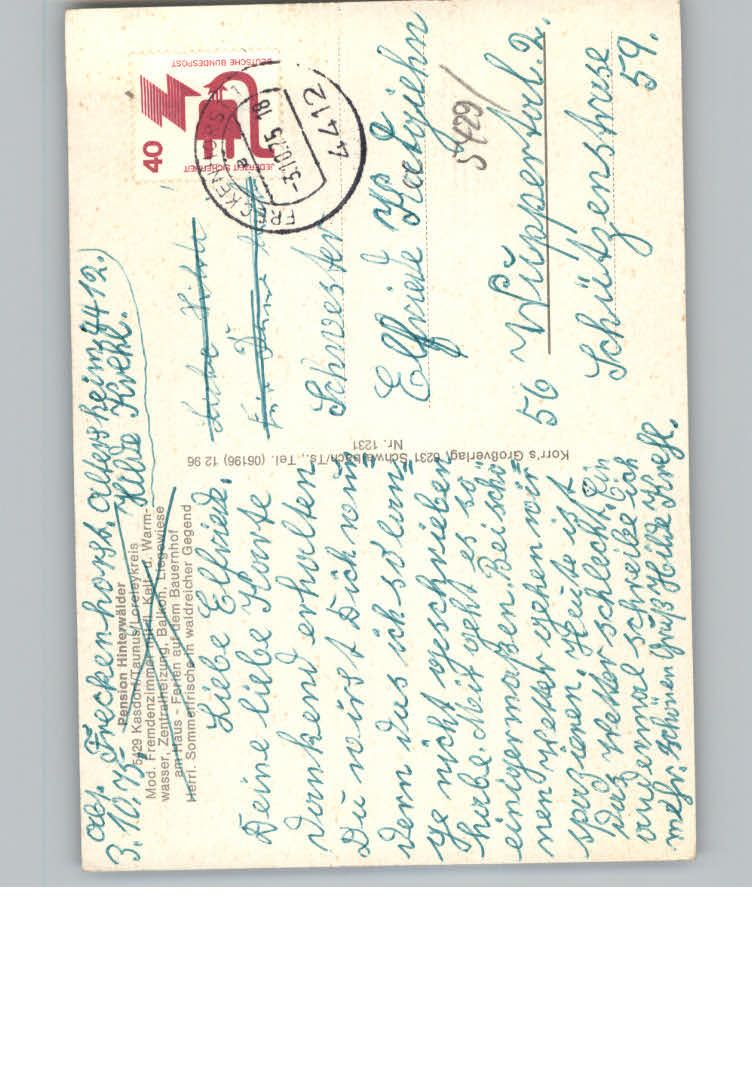 abs. Freckenhorst. Altersheim 4412.
3.10.75. Hilde Krehl.
Pension Hinterwälder
5429 Kasdorf/Taunus/Loreleykreis
Mod. Fremdenzimmer mit Kalt- u. Warm-
wasser, Zentralheizung, Balkon, Liegewiese
am Haus - Ferien auf dem Bauernhof
Herrl. Sommerfrische in waldreicher Gegend
Liebe Elfriede.
Deine liebe Karte
dankend erhalten
Du wirst Dich wun
dern das ich so lan
ge nicht geschrieben
habe. Mit geht es so
einigermaßen. Bei schö
nen Wetter gehen wir
spazieren. Heute ist
das Wetter schlecht. Ein
andermal schreibe ich
mehr. Schönen Gruß Hilde Krehl.
Korr's Großverlag, 6231 Schwalbach/Ts., Tel. (06196) 12 96
Nr. 1231
DEUTSCHE BUNDESPOST
40
JEDERZEIT SICHERHEIT
FRECKENHORST
-3.10.75.18
4412
Liebe
Schwester
Elfriede
5429/
56 Wuppertal. 2.
Schützenstrase
59.